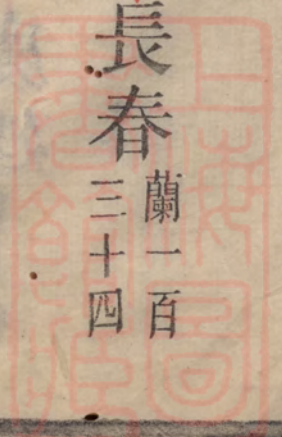 長春
蘭一百
三十四